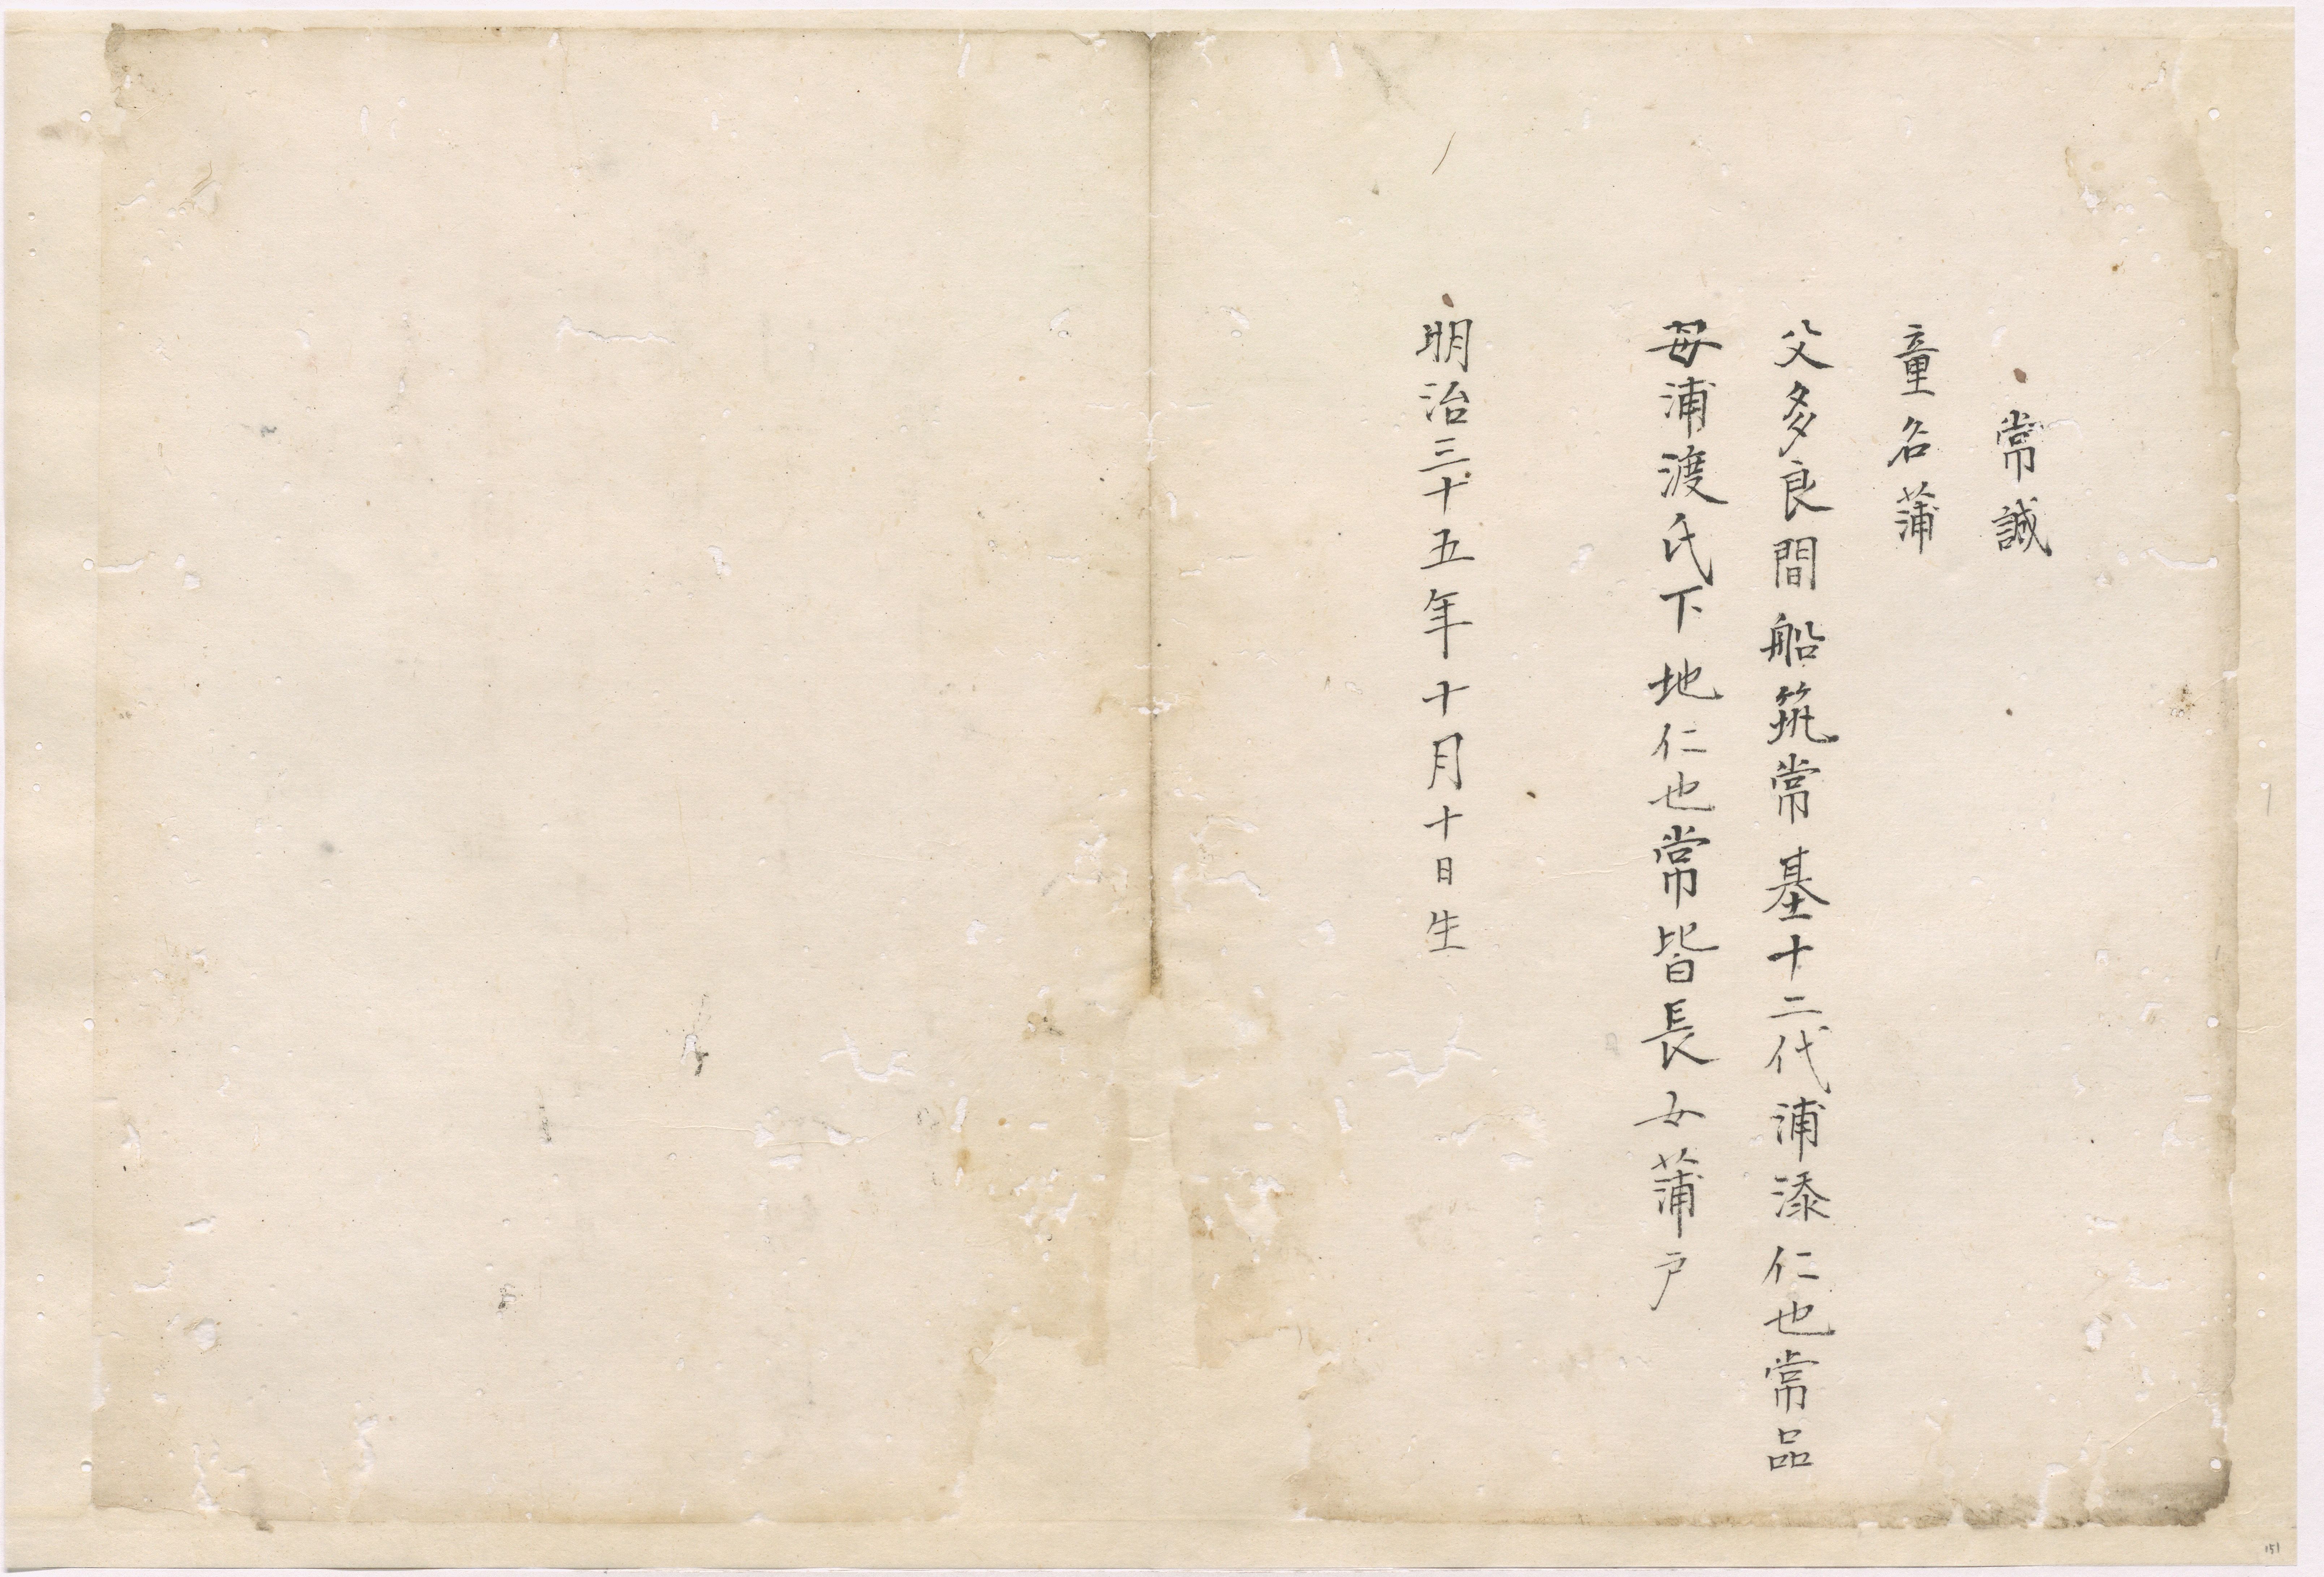 常誠
童名蒲
父多良間船筑常基十二代浦漆仁也常品
母浦渡氏下地仁也常皆長女蒲戸
明治三十五年十月十日生
151